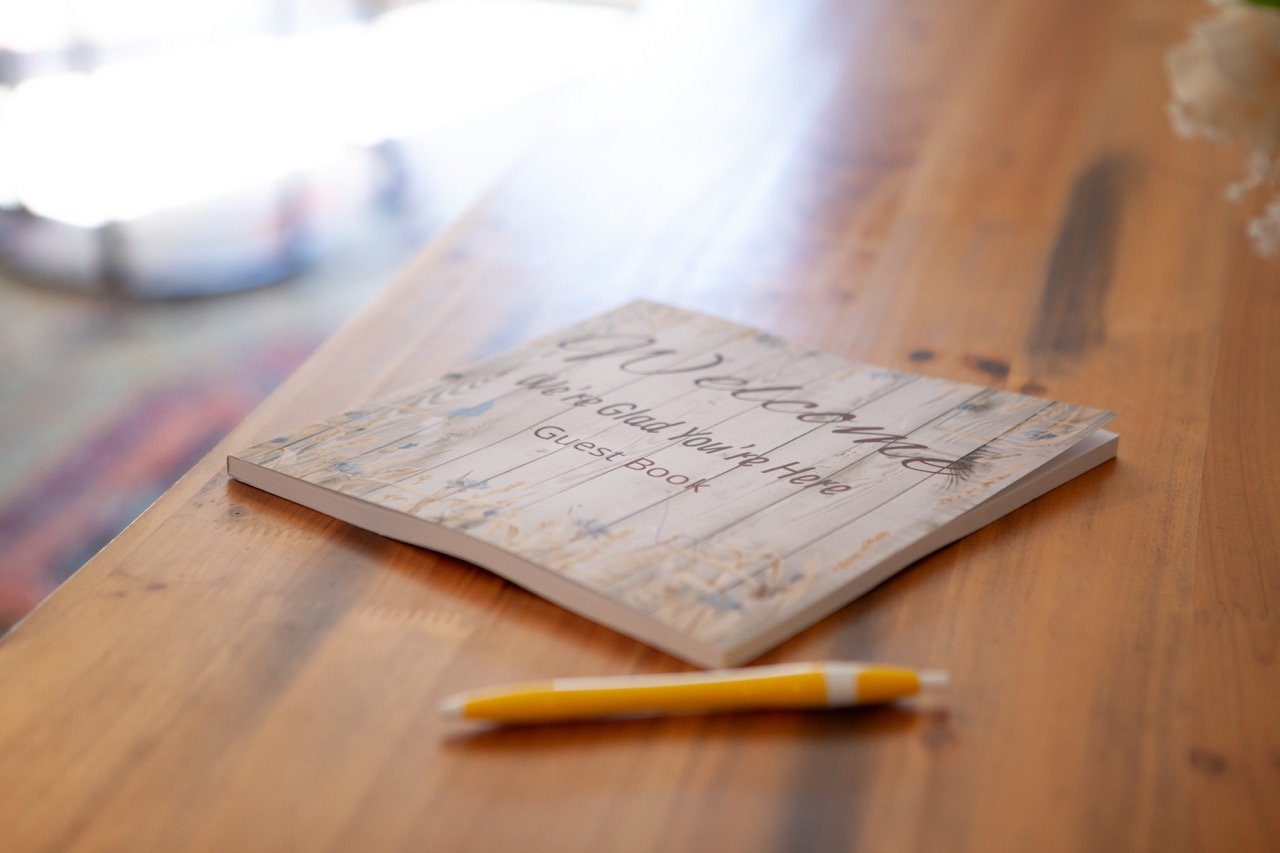 Welcome
We're Glad You're Here
Guest Book